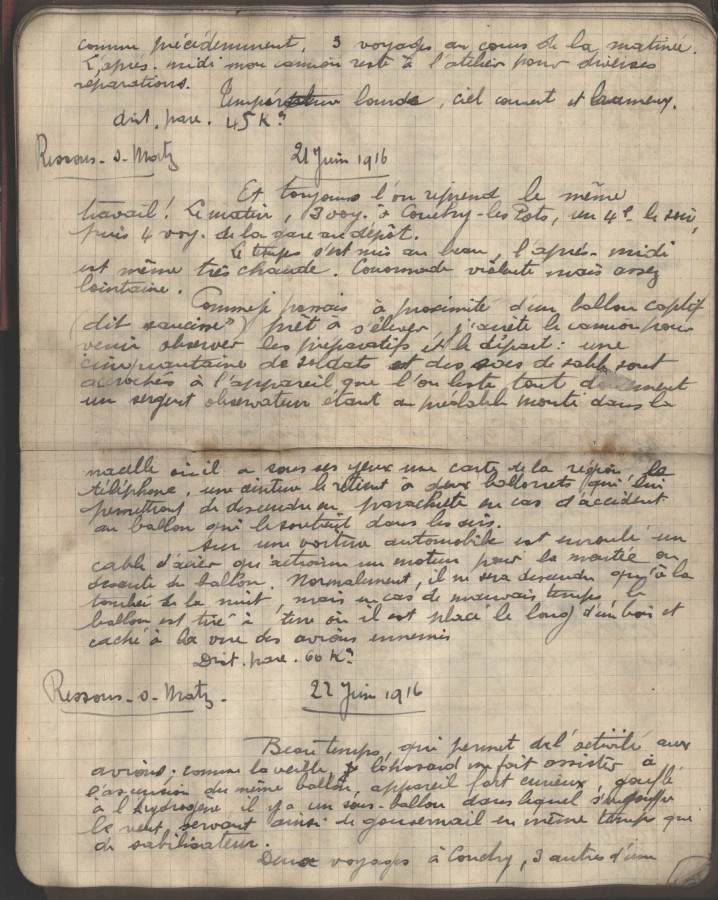 comme précédemment. 3 voyages au cours de la matinée.
L'après-midi mon camion reste à l'atelier pour diverses
réparations.
Température lourde, ciel couvert et brumeux.
dist. parc. 45 K?
Ressons-s-Matz 21 Juin 1916
Et toujours l'on reprend le même
travail! Le matin, 3 voy. à Conchy-les-Pots, un 4e le soir,
puis 4 voy. de la gare au dépôt.
Le temps s'est mis au beau, l'après-midi
est même très chaude. Canonnade violente mais assez
lointaine.
Comme je passais à proximité d'un ballon captif
(dit saucisse") prêt à s'élever, j'arrête le camion pour
venir observer les préparatifs et le départ: une
cinquantaine de soldats et des sacs de sable sont
accrochés à l'appareil que l'on leste tout
un sergent observateur étant au préalable monté dans la
nacelle où il a sous ses yeux une carte de la région le
téléphone, une ceinture le retient à deux ballonnets qui lui
permettront de descendre en parachute en cas d'accident
au ballon qui le soutient dans les airs.
Sur une voiture automobile est enroulé un
cable d'acier qu'actionne un moteur pour la montée ou
descente du ballon. Normalement, il ne sera descendu qu'à la
tombée de la nuit, mais en cas de mauvais temps le
ballon est tiré à terre où il est placé le long d'un bois et
caché à la vue des avions ennemis
Dist. parc. 60 K?
Ressons-s-Matz. 22 Juin 1916
Beau temps, qui permet de l'activité aux
avions; comme la veille, le hasard me fait assister à
l'ascension du même ballon, appareil fort curieux, gonflé
à l'hydrogène il y a un sous-ballon dans lequel s'engouffre
le vent, servant ainsi de gouvernail en même temps que
de stabilisateur.
Deux voyages à Conchy, 3 autres d'une